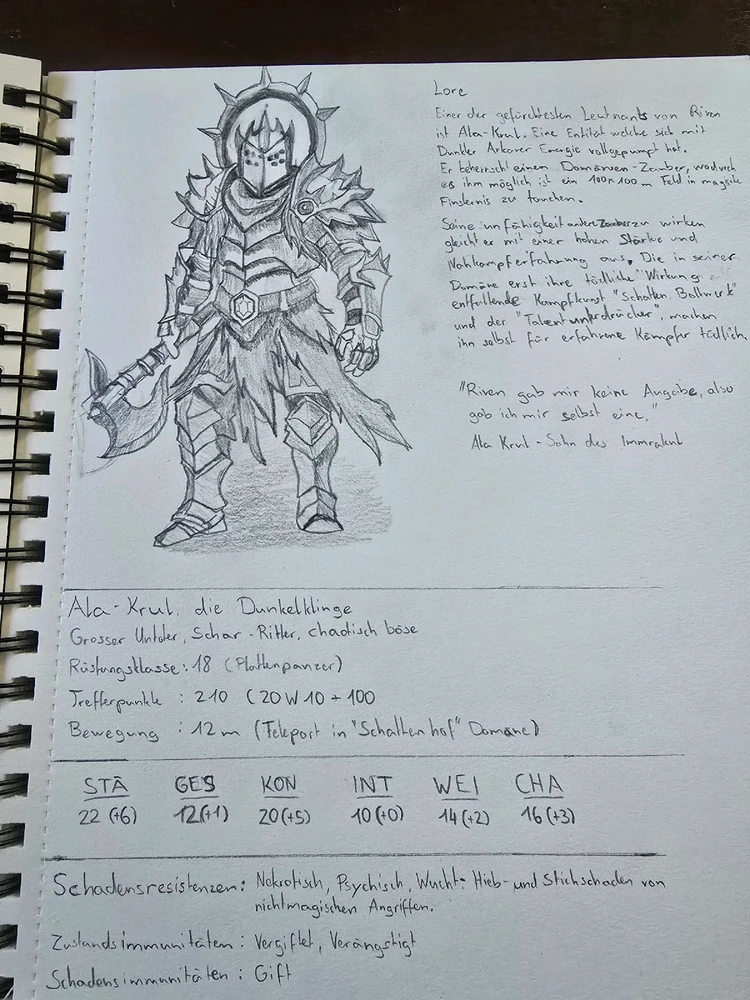 Lore
Einer der gefürchtesten Leutnants von Riven
ist Ala-Krul. Eine Entität welche sich mit
Dunkler Arkaner Energie vollgepumpt hat.
Er beherrscht einen Domänen-Zauber, wodurch
es ihm möglich ist ein 100x100 m Feld in magische
Finsternis zu tauchen.
Seine unfähigkeit andere Zauber zu wirken
gleicht er mit einer hohen Stärke und
Nahkampferfahrung aus. Die in seiner
Domäne erst ihre tödliche Wirkung
entfaltende Kampfkunst "Schatten Bollwerk"
und der "Talentunterdrücker", machen
ihn selbst für erfahrene Kämpfer tödlich.
"Riven gab mir keine Augabe, also
gab ich mir selbst eine."
Ala Krul - Sohn des Immralent
Ala-Krul, die Dunkelklinge
Grosser Untoter, Schar-Ritter, chaotisch böse
Rüstungsklasse: 18 (Plattenpanzer)
Trefferpunkte : 210 (20W10 + 100
Bewegung : 12 m (Teleport in "Schattenhof" Domäne)
STÄ GES KON INT WEI CHA
22 (+6) 12(+1) 20(+5) 10(+0) 14(+2) 16(+3)
Schadensresistenzen: Nekrotisch, Psychisch, Wucht- Hieb- und Stichschaden von
nichtmagischen Angriffen.
Zustandsimmunitäten : Vergiftet, Verängstigt
Schadensimmunitäten : Gift